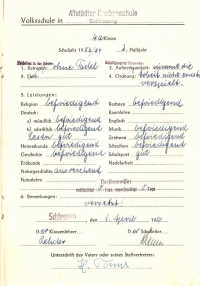 Altstädter Knabenschule
Volksschule in Schleswig
4 a Klasse
Schuljahr 1953/54 2. Halbjahr
1. Betragen: ohne Tadel
3. Aufmerksamkeit: nimmt die
2. Fleiß:
4. Ordnung: Arbeit nicht ernst
verspielt.
5. Leistungen:
Religion befriedigend
Rechnen befriedigend
Deutsch
Raumlehre
a) mündlich befriedigend
Englisch
b) schriftlich befriedigend
Musik befriedigend
Lesen gut
Zeichnen befriedigend
Heimatkunde befriedigend
Schreiben befriedigend
Geschichte befriedigend
Leibesübungen gut
Erdkunde
Nadelarbeit
Naturgeschichte ausreichend
Naturlehre
6. Bemerkungen:
versetzt!
Schleswig, den 1. April 1954
Klassenlehrer
Schulleiter
Unterschrift des Vaters oder seines Stellvertreters: